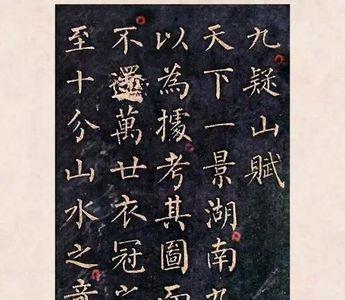 九疑山賦
天下一景湖南九
以為據考其圖而
不還萬廿衣冠
至十分山水之